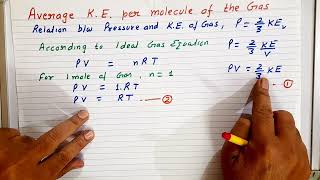 Average K.E. per molecule of the Gas
Relation b/w Pressure and K.E. of Gas, P = 2/3 KEv
According to Ideal Gas Equation
P = 2/3 KE/V
PV = nRT
For 1 mole of Gas, n = 1
PV = 2/3 KE
①
PV = 1.RT
PV = RT ②